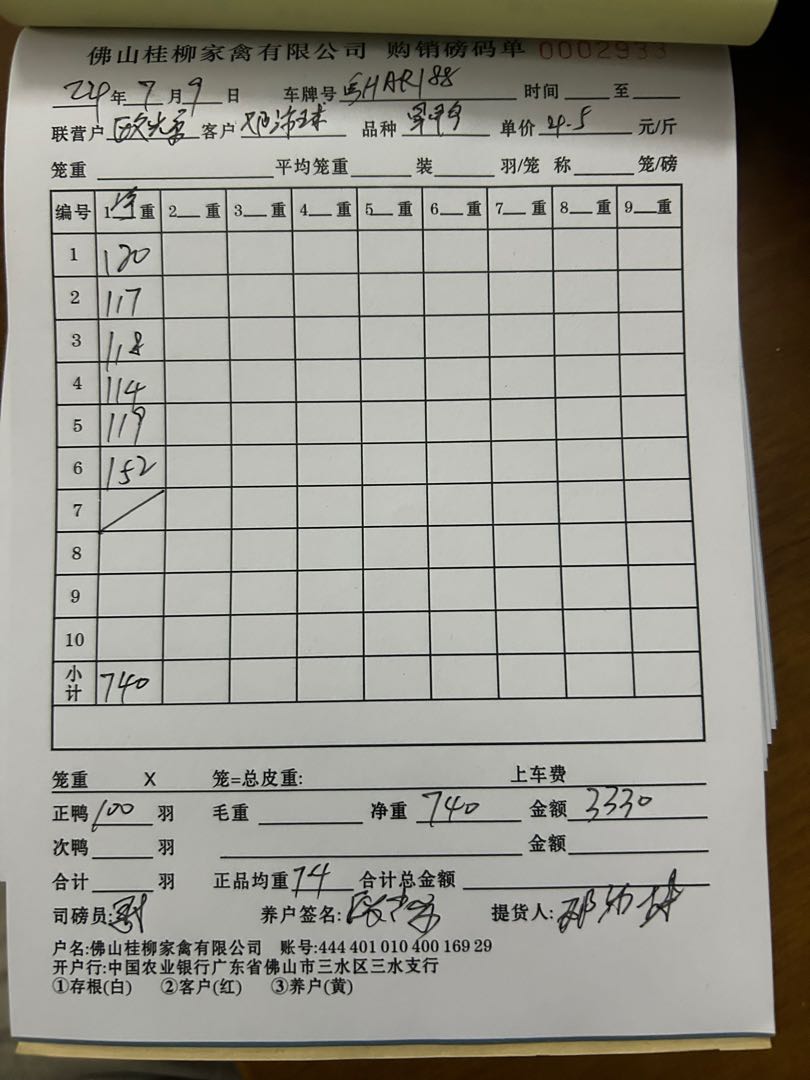 佛山桂柳家禽有限公司 购销磅码单 0002933
224年7月9日 车牌号 HAR188 时间 至
联营户 客户 品种 单价4.5元/斤
笼重 平均笼重 装 羽/笼 称 笼/磅
编号 1净重 2 重 3 重 4 重 5 重 6 重 7 重 8 重 9 重
1 120
2 117
3 118
4 114
5 119
6 152
7
8
9
10
小计 740
笼重 X 笼=总皮重: 上车费
正鸭100羽 毛重 净重740 金额3330
次鸭 羽 金额
合计 羽 正品均重74 合计总金额
司磅员: 养户签名: 提货人:
户名:佛山桂柳家禽有限公司 账号:444 401 010 400 169 29
开户行:中国农业银行广东省佛山市三水区三水支行
①存根(白) ②客户(红) ③养户(黄)